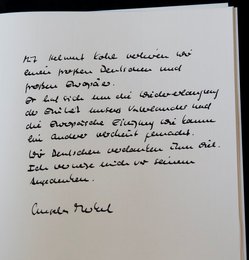 Mit Helmut Kohl verlieren wir
einen großen Deutschen und
großen Europäer.
Er hat sich um die Wiedererlangung
der Einheit unseres Vaterlandes und
die Europäische Einigung wie kaum
ein Anderer verdient gemacht.
Wir Deutschen verdanken ihm viel.
Ich verneige mich vor seinem
Angedenken.
Angela Merkel